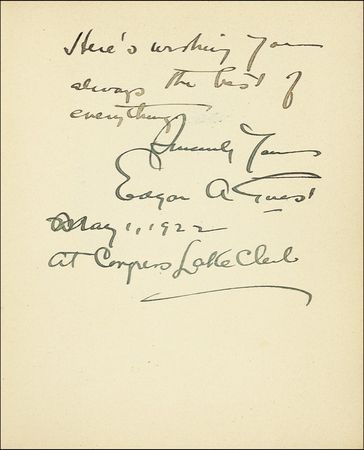 Here's wishing you
always the best of
everything
Sincerely Yours
Edgar A Guest
May 1, 1922
At Congress Lake Club